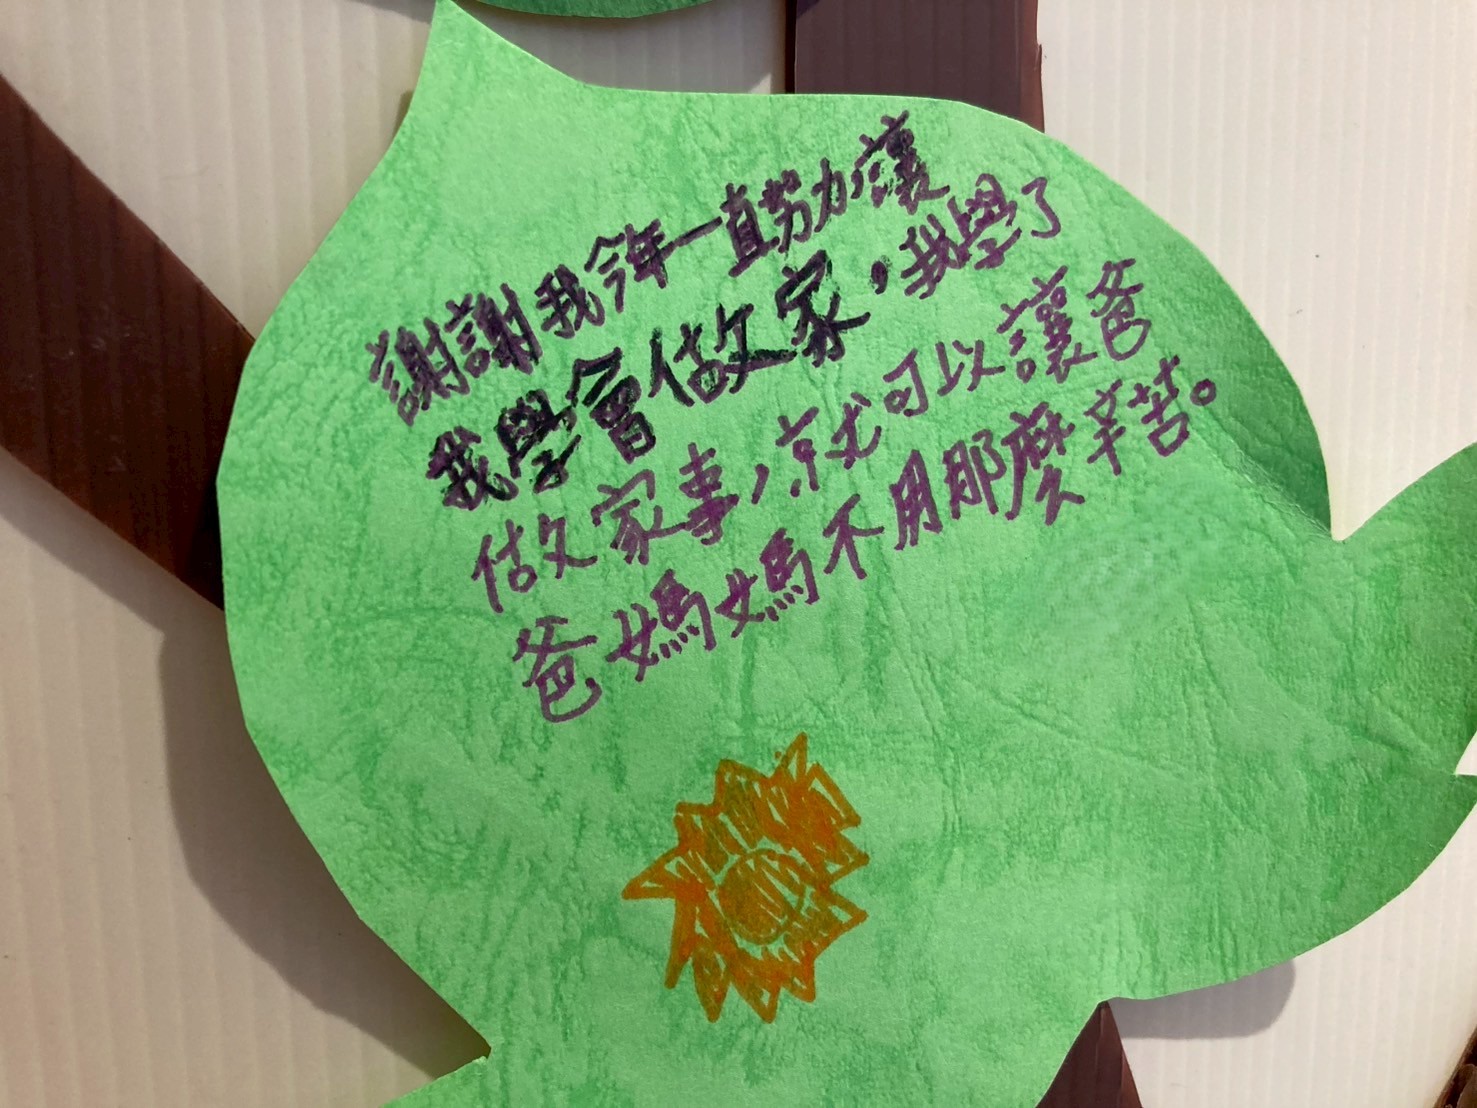 謝謝我今年一直努力讓
我學會做家，我學了
做家事，就可以讓爸
爸媽媽不用那麼辛苦。